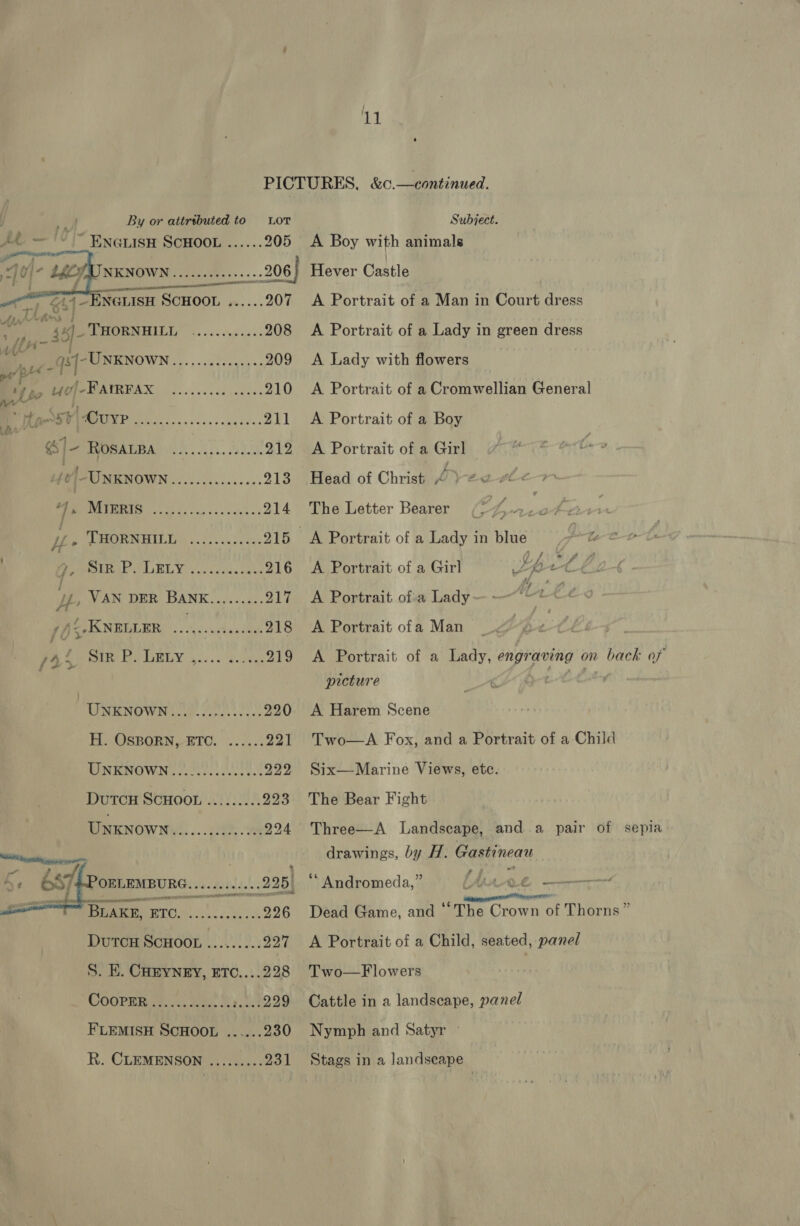 11
PICTURES, &c.—continued.
By or attributed to LOT Subject.
ENGLISH SCHOOL ...... 205 A Boy with animals
UNKNOWN ............... 206 Hever Castle
ENGLISH SCHOOL ...... 207 A Portrait of a Man in Court dress
THORNHILL ............ 208 A Portrait of a Lady in green dress
UNKNOWN ............... 209 A Lady with flowers
FAIRFAX ............... 210 A Portrait of a Cromwellian General
CUYP ..................... 211 A Portrait of a Boy
ROSALBA ............... 212 A Portrait of a Girl
UNKNOWN ............... 213 Head of Christ
MIERIS .................. 214 The Letter Bearer
THORNHILL ............ 215 A Portrait of a Lady in blue
SIR P. LELY ............ 216 A Portrait of a Girl
VAN DER BANK......... 217 A Portrait of a Lady
KNELLER ............... 218 A Portrait of a Man
SIR P. LELY ............ 219 A Portrait of a Lady, engraving on back of
picture
UNKNOWN ............... 220 A Harem Scene
H. OSBORN, ETC. ...... 221 Two—A Fox, and a Portrait of a Child
UNKNOWN ............... 222 Six—Marine Views, etc.
DUTCH SCHOOL ......... 223 The Bear Fight
UNKNOWN ............... 224 Three—A Landscape, and a pair of sepia
drawings, by H. Gastineau
POELEMBURG ............ 225 “Andromeda,”
BLAKE, ETC. ............ 226 Dead Game, and “The Crown of Thorns”
DUTCH SCHOOL ......... 227 A Portrait of a Child, seated, panel
S. E. CHEYNEY, ETC.... 228 Two—Flowers
COOPER .................. 229 Cattle in a landscape, panel
FLEMISH SCHOOL ...... 230 Nymph and Satyr
R. CLEMENSON ......... 231 Stags in a landscape